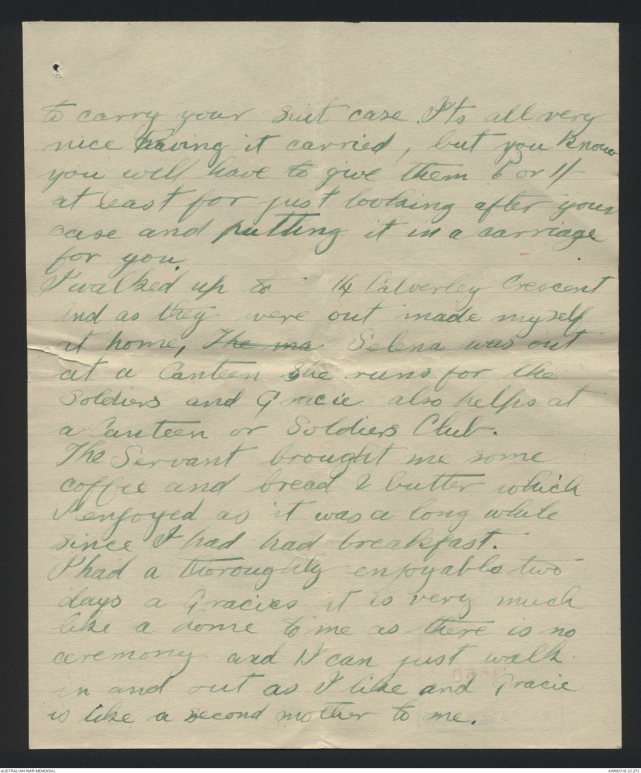 to carry your suit case. It's all very
nice having it carried, but you know
you will have to give them 6 or 1/-
at least for just looking after your
case and putting it in a carriage
for you.
I walked up to 14 Calverley Crescent
and as they were out made myself
at home, The ma Selena was out
at a Canteen she runs for the
Soldiers and Gracie also helps at
a Canteen or Soldiers Club.
The Servant brought me some
coffie and bread & butter which
I enjoyed as it was a long while
since I had had breakfast.
I had a thoroughly enjoyable two
days a Gracies it is very much
like a home to me as there is no
ceremony and I can just walk
in and out as I like and Gracie
is like a second mother to me.
AUSTRALIAN WAR MEMORIAL